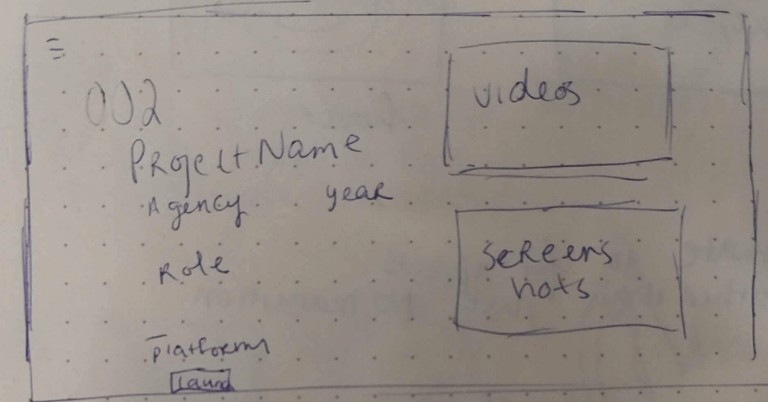 002
Project Name
Agency year
Role
Platform
videos
screens
hots